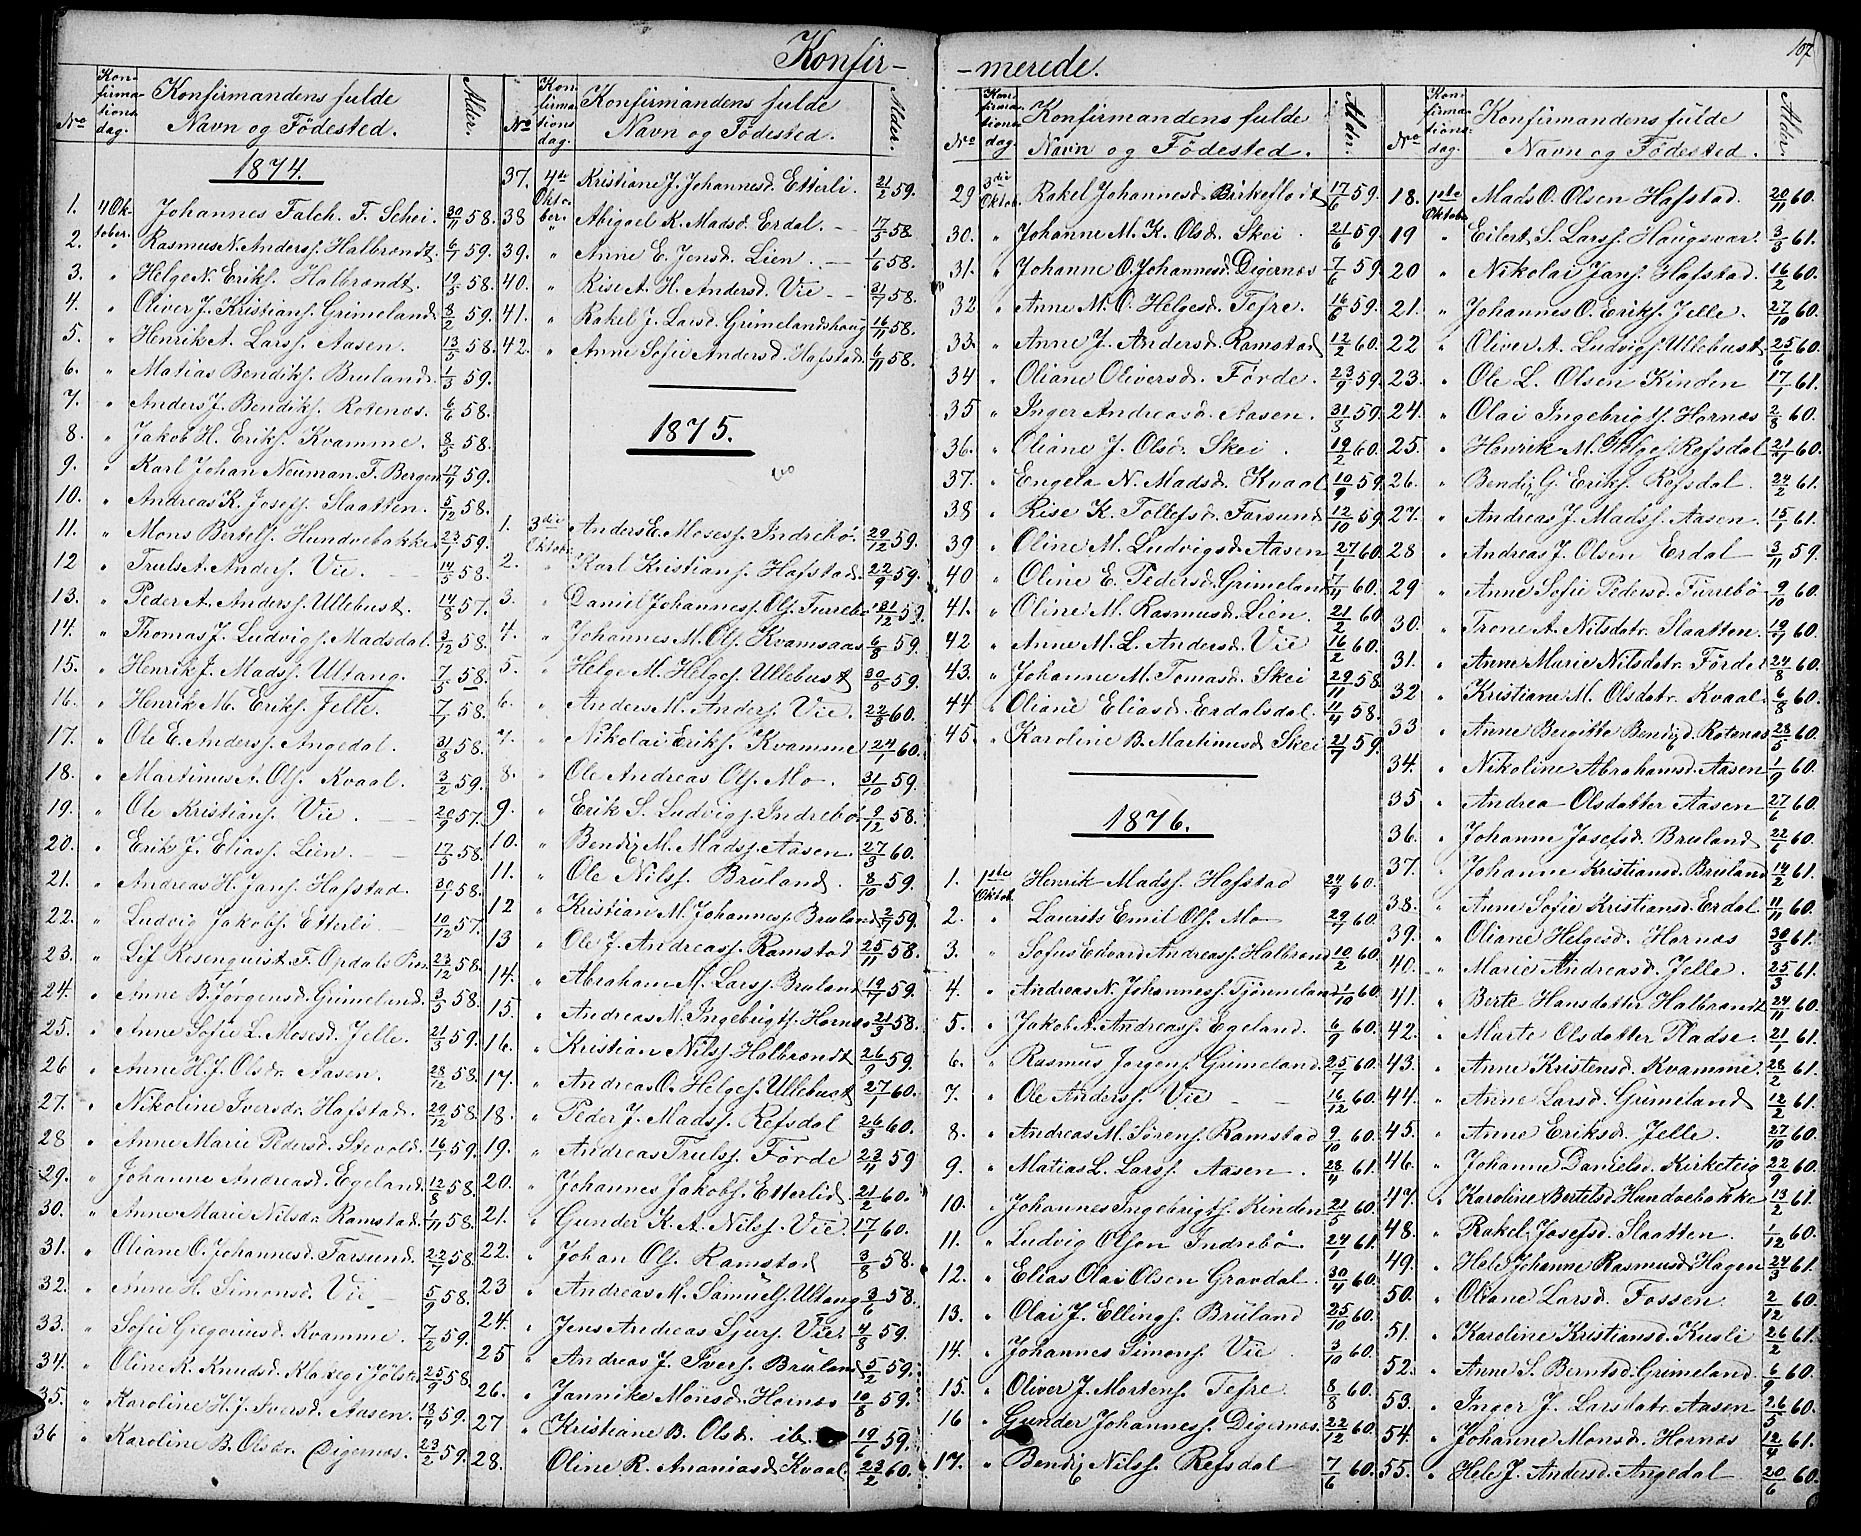 Konfir-
No
Kon-
firma-
tions
dag.
Konfirmandens fulde
Navn og Födested.
Alder.
1874.
1. 4 Ok- Johannes Falch. F. Schei. 30/11 58.
2. tober. Rasmus N. Anders. Halbrendt. 6/7 59.
3. " Helge N. Eriks. Halbrendt. 19/5 58.
4. " Oliver J. Kristians. Grimeland. 3/2 59.
5. " Henrik A. Larss. Aasen. 13/5 58.
6. " Matias Bendiks. Bruland. 1/3 59.
7. " Anders J. Bendiks. Rotenæs. 6/6 58.
8. " Jakob H. Eriks. Kvamme. 8/5 58.
9. " Karl Johan Neuman. F. Bergen 17/4 59.
10. " Andreas K. Josefs. Slaatten. 5/12 58.
11. " Mons Bertels. Hundvebakke 23/1 59.
12 " Truls A. Anders. Vie. 14/5 58.
13. " Peder A. Anderss. Ullebust. 14/8 57.
14. " Thomas J. Ludvigs. Madsdal. 3/12 58.
15. " Henrik J. Madss. Ultang. 7/5 58.
16. " Henrik M. Eriks. Jelle. 7/1 58.
17. " Ole E. Anderss. Angedal. 31/8 58.
18. " Martinus A. Ols. Kvaal. 3/2 59.
19. " Ole Kristians. Vie. 20/9 57.
20. " Erik J. Eliass. Lien. 17/5 58.
21. " Andreas H. Jans. Hafstad. 30/7 58.
22. " Ludvig Jakobs. Etterli 10/12 57.
23. " Lif Rosenquist. F. Opdals Præ. 23/12 58.
24. " Anne B. Jörgensd. Grimeland. 3/5 58.
25. " Anne Sofie L. Mosesd. Jelle. 21/3 59.
26 " Anne H. J. Olsdr. Aasen. 28/12 58.
27. " Nikoline Iversdr. Hafstad. 29/12 58.
28 " Anne Marie Pedersd. Stevold. 16/1 59.
29. " Johanne Andreasd. Egeland. 12/8 58.
30. " Anne Marie Nilsdr. Ramstad. 1/11 58.
31. " Oliane O. Johannesd. Farsund. 22/7 58.
32. " Anne H. Simonsd. Vie 5/9 58.
33. " Sofie Gregoriusd. Kvamme. 7/2 59.
34. " Oline K. Knudsd. Klakeg i Jölster 25/9 58.
35. " Karoline H. J. Iversd. Aasen. 18/4 59.
36 " Karoline B. Olsdr. Digernæs. 23/2 59.
No
Kon
firma-
tions
dag.
Konfirmandens fulde
Navn og Födested.
Alder.
37. 4de Kristiane J. Johannesd. Etterli. 21/2 59.
38 Oktober. Abigael K. Madsd. Erdal. 17/5 58
39. " Anne E. Jensd. Lien. 1/6 58.
40. " Rise A. H. Andersd. Vie 31/7 58.
41. " Rakel J. Larsd. Grimelandshaug 16/11 58.
42. " Anne Sofie Andersd. Hafstad. 6/11 58.
1875.
1. 3die Oktob. Anders E. Mosess. Indrebö. 29/12 59.
2. " Karl Kristians. Hafstad. 22/9 59.
3. " Daniel Johannes. Ols. Furrebö 31/12 59.
4. " Johannes M. Ols. Kvamsaas 6/8 59.
5. " Helge M. Helges. Ullebust 30/5 59.
6. " Anders M. Anders. Vie. 22/5 60.
7. " Nikolai Eriks. Kvamme 24/1 60.
8. " Ole Andreas Ols. Mo. 31/10 59.
9. " Erik S. Ludvigs. Indrebö. 9/12 58.
10. " Bendix M. Madss. Aasen. 27/3 60.
11. " Ole Nilss. Bruland. 8/10 59.
12 " Kristian M. Johanness. Bruland 2/7 59.
13 " Ole J. Andreass. Ramstad 25/11 58.
14. " Abraham M. Larss. Bruland 19/7 59.
15. " Andreas N. Ingebrigts. Hornæs 21/3 58.
16. " Kristian Nilss. Halbrendt 26/9 59.
17. " Andreas O. Helges. Ullebust 27/1 60.
18. " Peder J. Madss. Refsdal 26/3 60.
19. " Andreas Trulss. Förde 23/4 59
20. " Johannes Jakobs. Etterlid 21/2 60.
21. " Gunder K. A. Nilss. Vie 17/1 60.
22. " Johan Ols. Ramstad 3/8 58.
23 " Andreas M. Samuels. Ultang 3/6 58.
24. " Jens Andreas Sjurs. Vie. 4/8 59.
25 " Andreas J. Ivers. Bruland 5/2 59.
26. " Jannike Monsd. Hornæs 10/8 59.
27 " Kristiane B. Olsd. ib. 19/6 59.
28. Oline R. Ananiasd. Kvaal. 23/2 60.
-merede.
107
No
Kon-
firma-
tions
dag.
Konfirmandens fulde
Navn og Födested.
Alder.
29 3die Oktob. Rakel Johannesd. Birkefloit 17/6 59.
30. " Johanne M. K. Olsd. Skei. 21/6 59.
31. " Johanne O. Johannesd. Digernæs 7/6 59.
32 " Anne M. O. Helgesd. Tefre. 16/6 59.
33. " Anne J. Andersd. Ramstad 12/2 60.
34 " Oliane Oliversd. Förde. 23/9 59.
35 " Inger Andreasd. Aasen. 31/3 59
36. " Oliane J. Olsd. Skei. 19/2 60.
37. " Engela N. Madsd. Kvaal 10/9 59.
38 " Rise K. Tollefsd. Farsund 12/10 59
39 " Oline M. Ludvigsd. Aasen 27/1 60.
40 " Oline E. Pedersd. Grimeland 7/4 60.
41. " Oline M. Rasmusd. Lien. 21/2 60
42 " Anne M. L. Andersd. Vie 16/2 60.
43. " Johanne M. Tomasd. Skei 29/11 58
44 " Oliane Eliasd. Erdalsdal. 11/4 58.
45. " Karoline B. Martinusd. Skei 21/7 59.
1876.
1. 1ste Oktob. Henrik Madss. Hafstad 24/9 60.
2. " Laurits Emil Ols. Mo 29/7 60.
3. " Sofus Edvard Andreass. Halbrend 10/2 60.
4. " Andreas N. Johanness. Tjönneland 1/10 60.
5. " Jakob A. Andreass. Egeland. 6/9 60.
6. " Rasmus Jörgens. Grimeland. 25/7 60.
7. " Ole Anderss. Vie 16/12 60.
8. " Andreas M. Sörens. Ramstad 9/10 60.
9. " Matias L. Larss. Aasen. 28/4 61.
10. " Johannes Ingebrigts. Kinden 21/5 60.
11. " Ludvig Olsen Indrebö. 24/1 61.
12. " Elias Olai Olsen Gravdal. 30/4 60.
13. " Olai J. Ellings. Bruland 25/10 60.
14. " Johannes Simons. Vie. 3/10 60.
15. " Oliver J. Mortens. Tefre. 8/8 60.
16 " Gunder Johanness. Digernæs. 22/12 60.
17. " Bendix Nilss. Refsdal 7/6 60.
No
Kon-
firma-
tions:
dag.
Konfirmandens fulde
Navn og Födested.
Alder.
18. 1ste Oktob. Mads O. Olsen Hafstad. 20/11 60.
19 " Eilert S. Larss. Haugsvær. 3/3 61.
20 " Nikolai Jans. Hafstad. 16/2 60.
21. " Johannes O. Eriks. Jelle. 27/10 60.
22 " Oliver A. Ludvigs. Ullebust 25/6 60.
23. " Ole L. Olsen Kinden 17/1 61.
24. " Olai Ingebrigts. Hornæs 2/8 60.
25. " Henrik M. Helges. Refsdal 21/4 60.
26. " Bendix G. Eriks. Refsdal. 24/2 61.
27. " Andreas J. Madss. Aasen. 15/1 61.
28 " Andreas J. Olsen Erdal 3/11 59.
29 " Anne Sofie Pedersd. Furrebö 9/10 60.
30. " Trone A. Nilsdatr. Slaatten. 19/7 60.
31. " Anne Marie Nilsdatr. Förde. 24/8 60.
32 " Kristiane M. Olsdatr. Kvaal. 6/8 60.
33 " Anne Bergitte Bendixd. Rotenæs 28/5 60.
34. " Nikoline Abrahamsd. Aasen 1/9 60.
35 " Andrea Olsdatter Aasen 27/6 60.
36. " Johanne Josefsd. Bruland. 22/6 60.
37. " Johanne Kristiansd. Bruland 14/2 61.
38. " Anne Sofie Kristiansd. Erdal 11/11 60.
39. " Oliane Helgesd. Hornæs 30/3 61.
40. " Marie Andreasd. Jelle. 25/3 61.
41. " Berte Hansdatter Halbrandt 24/11 60.
42. " Marte Olsdatter Pladse. 21/1 61.
43. " Anne Kristensd. Kvamme. 28/2 61.
44. " Anne Larsd. Grimeland 12/2 61.
45. " Anne Eriksd. Jelle. 27/10 60.
46. " Johanne Danielsd. Kirketeig 22/9 60.
47. " Karoline Bertelsd. Hundvebakke 13/2 61.
48. " Rakel Josefsd. Slaatten. 1/12 60.
49. " Hele Johanne Rasmusd. Hagen 24/3 61.
50. " Oliane Larsd. Fossen 2/12 60.
51. " Karoline Kristiansd. Kusli 26/2 61.
52. " Anne S. Berntsd. Grimeland. 6/9 60.
53. " Inger J. Larsdatr. Aasen 26/5 60.
54. " Johanne Monsd. Hornæs 12/4 61.
55. " Hele J. Andersd. Angedal 20/6 60.